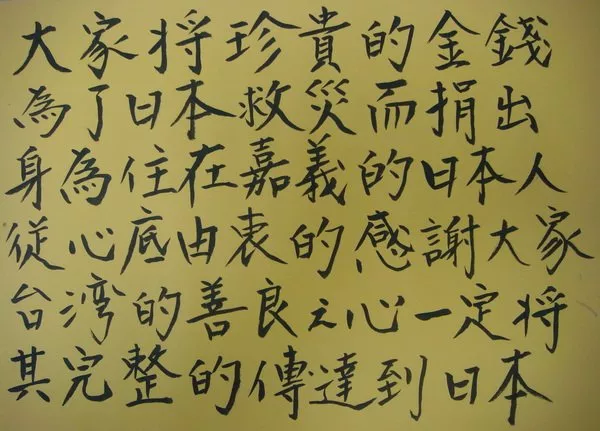 大家将珍貴的金錢
為了日本救災而捐出
身為住在嘉義的日本人
從心底由衷的感謝大家
台湾的善良之心一定将
其完整的傳達到日本